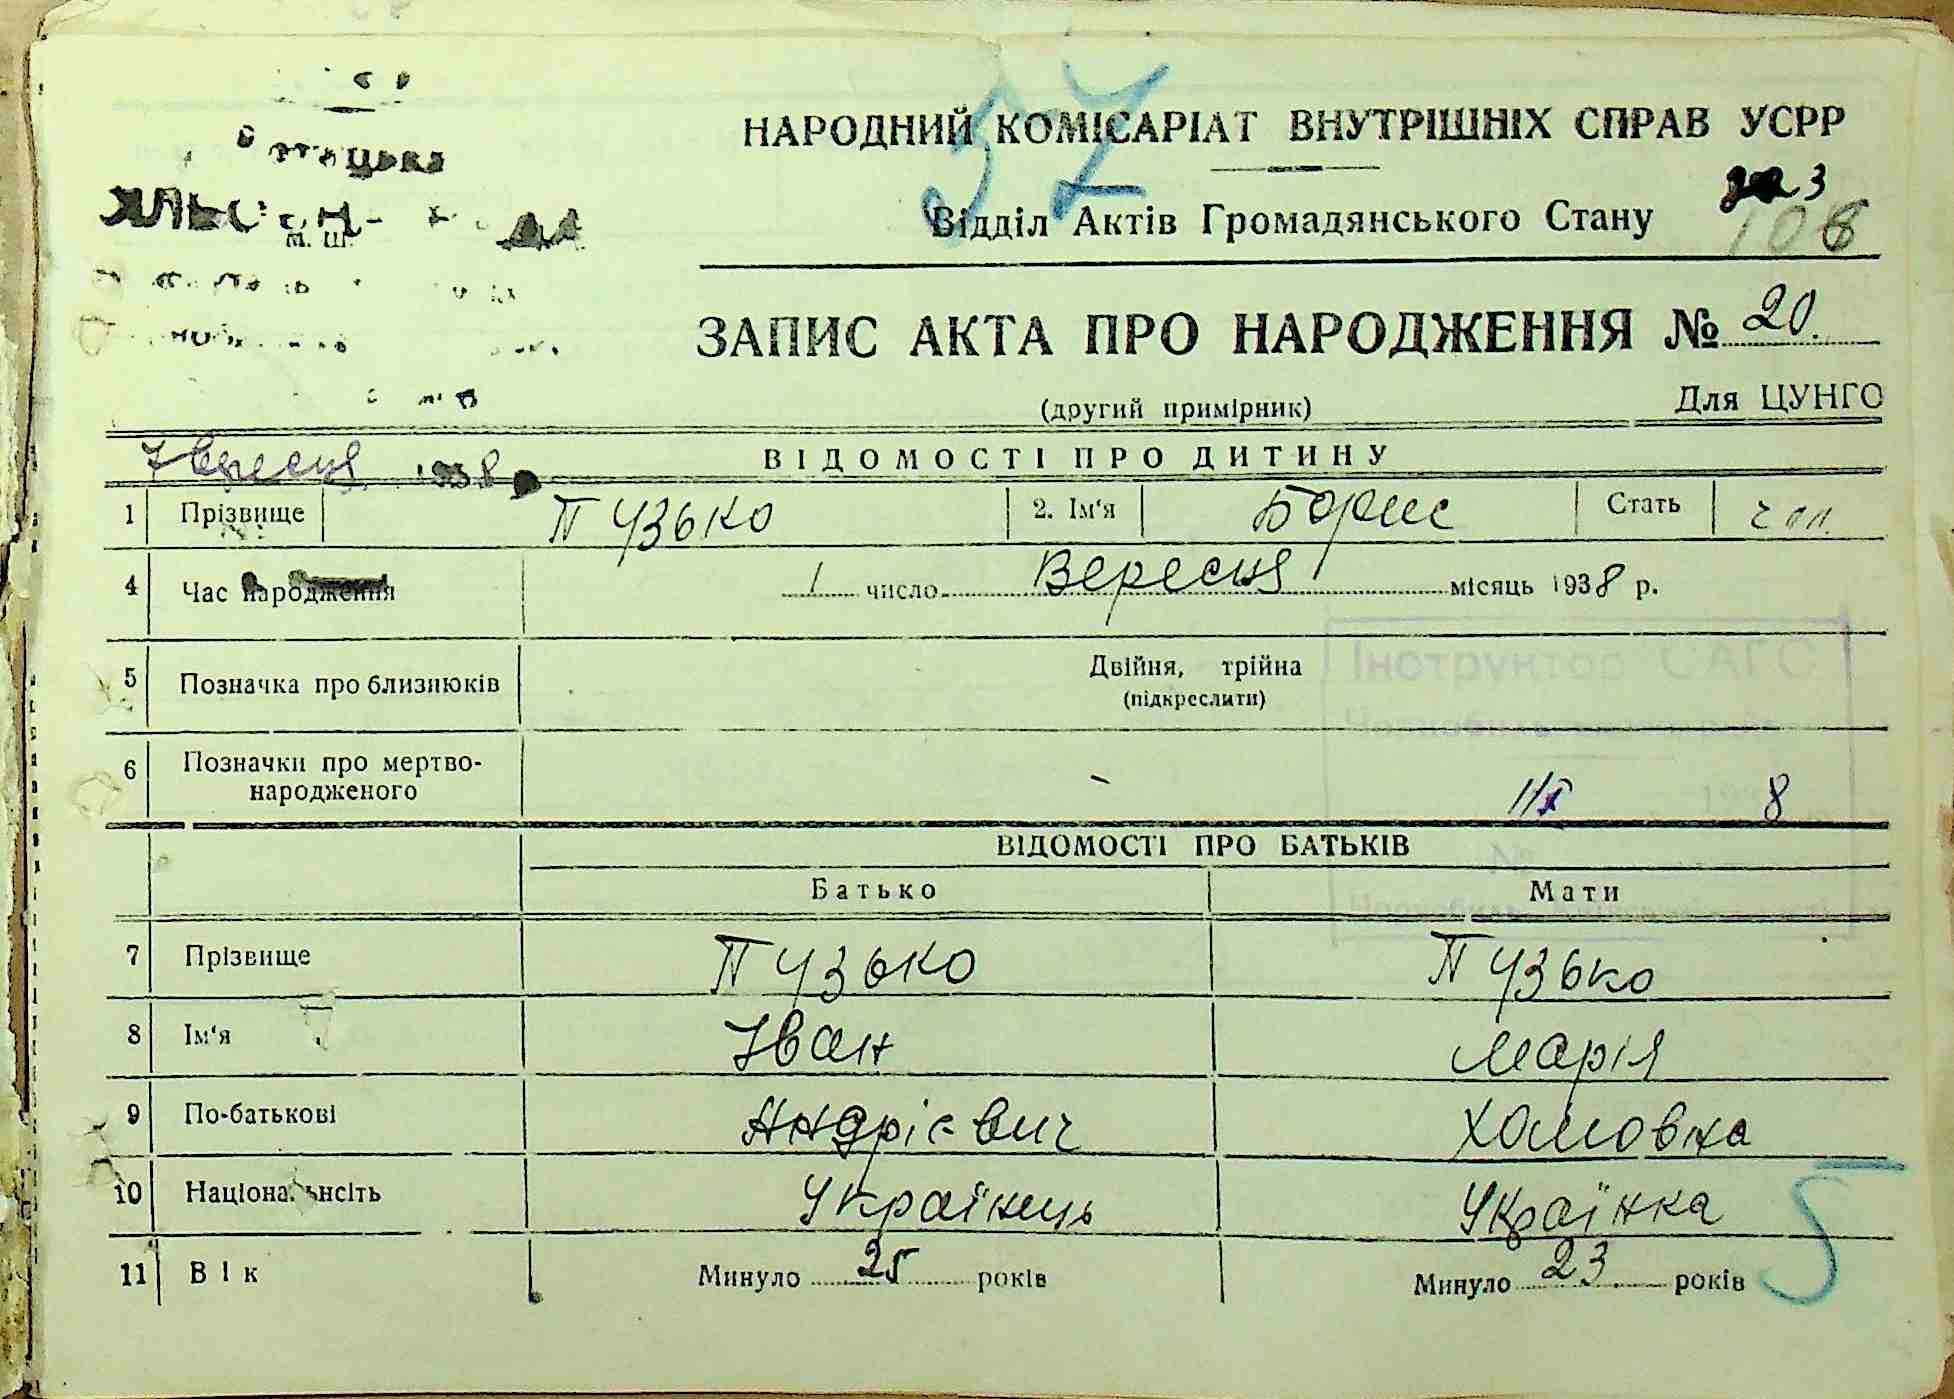 57
НАРОДНИЙ КОМІСАРІАТ ВНУТРІШНІХ СПРАВ УСРР
3
Відділ Актів Громадянського Стану
106
ЗАПИС АКТА ПРО НАРОДЖЕННЯ № 20.
(другий примірник) Для ЦУНГО
7 вересця 1938
ВІДОМОСТІ ПРО ДИТИНУ
1 Прізвище Пузько 2. Ім'я Борис Стать чол.
4 Час народження 1 число Вересця місяць 1938 р.
5 Позначка про близнюків Двійня, трійна
(підкреслити)
Інструктор ОАГС
6 Позначки про мертво-
народженого - 8
ВІДОМОСТІ ПРО БАТЬКІВ
№
Батько Мати
7 Прізвище Пузько Пузько
8 Ім'я Іван Марія
9 По-батькові Андрієвич Хомовна
10 Національнсіть Українець Українка
11 Вік Минуло 25 років Минуло 23 років
5